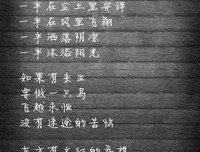 一半在尘土里安详
一半在风里飞翔
一半洒落阴凉
一半沐浴阳光
如果有来生
要做一只鸟
飞越永恒
没有迷途的苦恼